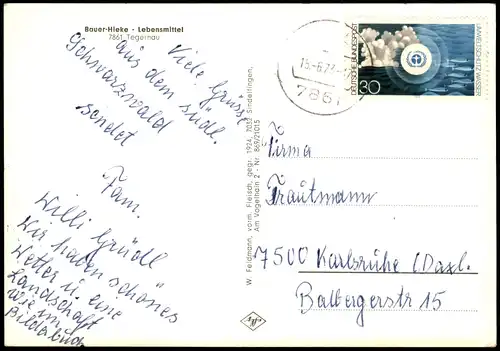 Bauer-Hieke - Lebensmittel
7861 Tegernau
Viele Grüsse
aus dem südl.
Schwarzwald
sendet
Fam.
Willi Gründl
Wir haben schönes
Wetter u. eine
Landschaft
wie im
Bilderbuch
W. Feldmann, vorm. Fleisch, gegr. 1924, 7032 Sindelfingen,
Am Vogelhain 2 - Nr. 869/21015
7861
DEUTSCHE BUNDESPOST
30
UMWELTSCHUTZ WASSER
Firma
Trautmann
7500 Karlsruhe (Daxl.
Balbergerstr 15